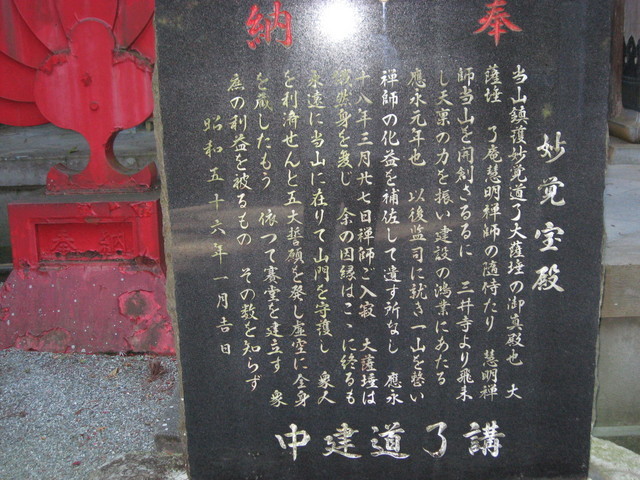 奉納
妙覚宝殿
当山鎮護妙覚道了大薩埵の御真殿也 大
薩埵 了庵慧明禅師の随侍たり 慧明禅
師当山を開創さるるに 三井寺より飛来
し天稟の力を振い建設の鴻業にあたる
應永元年也 以後監司に就き一山を営い
禅師の化益を補佐して遺す所なし 應永
十八年三月廿七日禅師ご入寂 大薩埵は
忽然身を変じ 余の因縁はここに終るも
永遠に当山に在りて山門を守護し 衆人
を利済せんと五大誓願を発し虚空に全身
を蔵したもう 依つて寶堂を建立す 衆
庶の利益を被るもの その数を知らず
昭和五十六年一月吉日
講了道建中
奉納